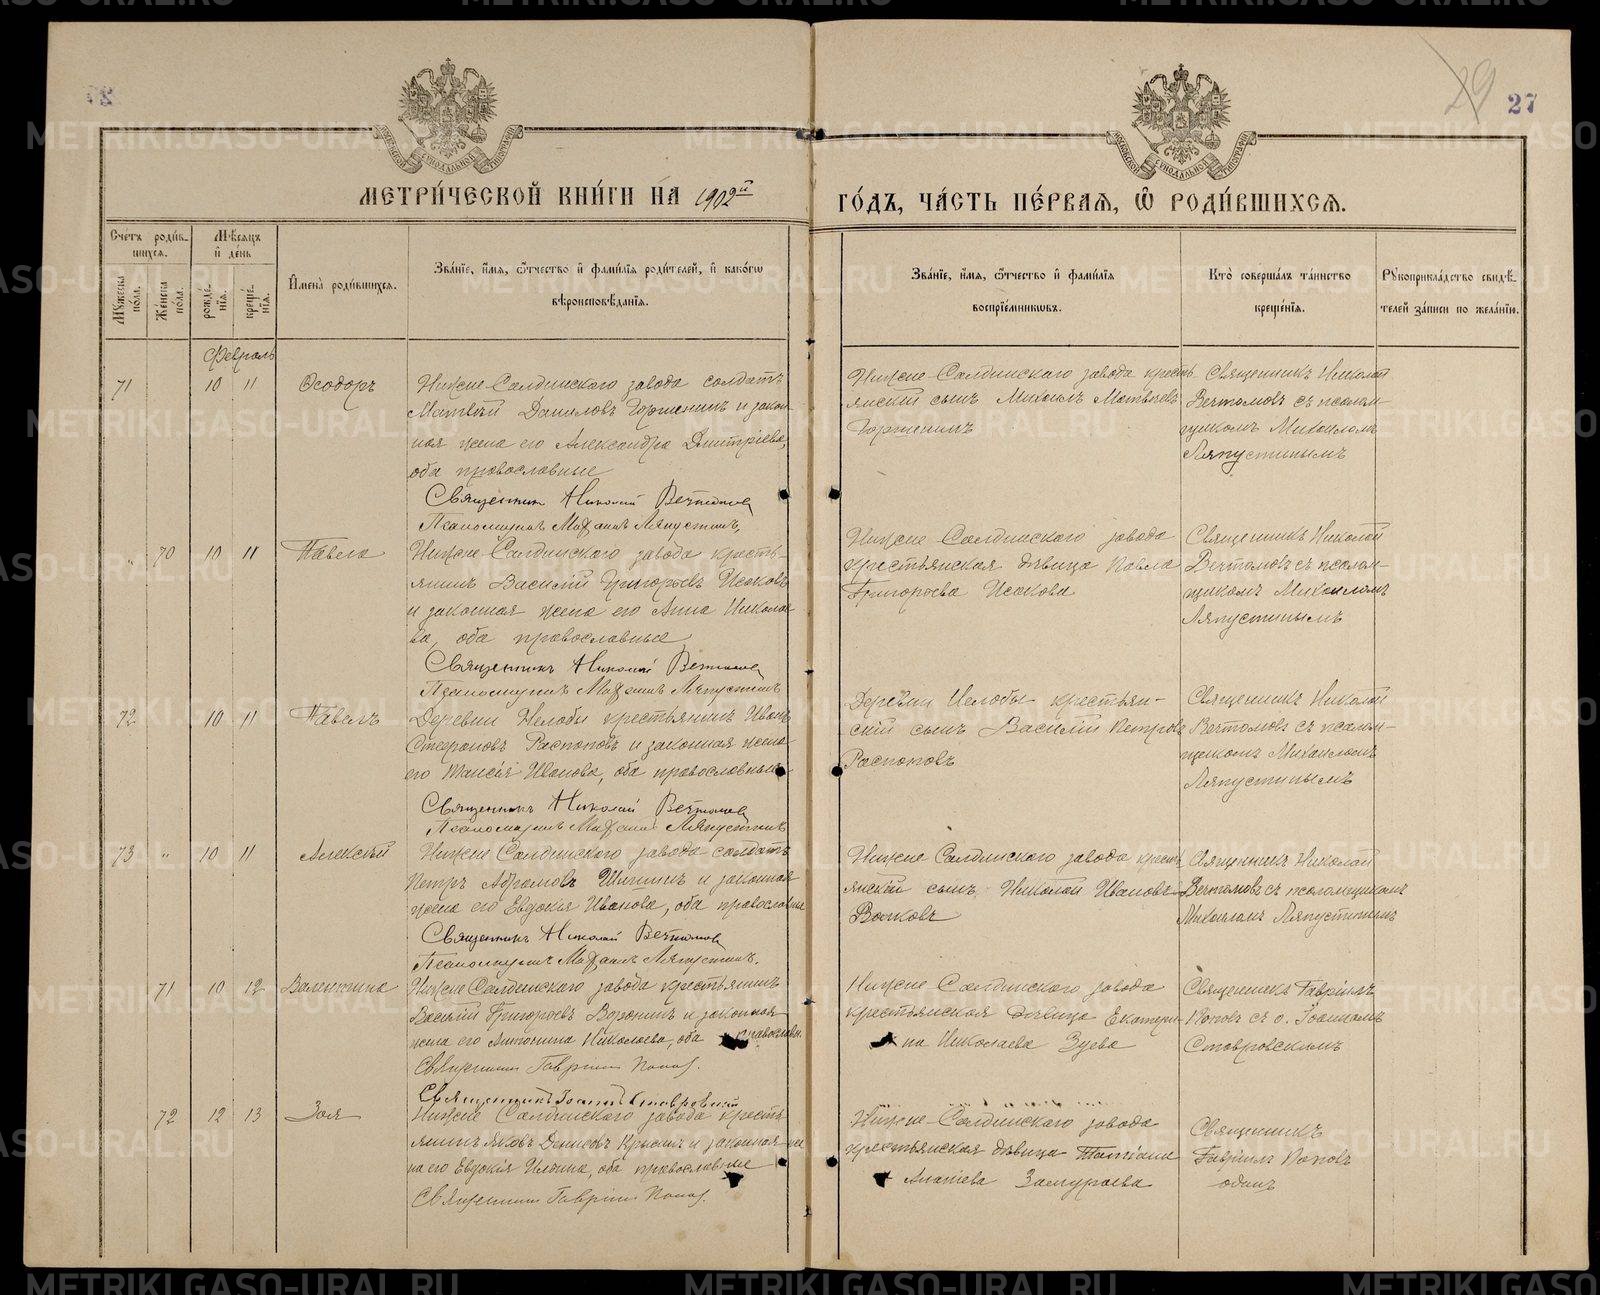 29 27
МЕТРИ́ЧЕСКОЙ КНИ́ГИ НА 1902й ГО́ДЪ, ЧА́СТЬ ПЕ́РВАЯ, Ѡ РОДИ́ВШИХСЯ.
Сче́тъ роди́в-
шихся.
Му́жеска по́ла.
Же́нска по́ла.
Мѣ́сяцъ и де́нь
рожде́нія.
креще́нія.
Имена̀ роди́вшихся.
Зва́ніе, и́мя, ѻ́тчество и фами́лія роди́телей, и како́гѡ
вѣроисповѣ́данія.
Зва́ніе, и́мя, ѻ́тчество и фами́лія
воспріе́мниковъ.
Кто̀ соверша́лъ та́инство
креще́нія.
Рукоприкла́дство свидѣ́-
телей за́писи по жела́нію.
Февраль
71 10 11 Ѳеодоръ
Нижне-Салдинскаго завода солдатъ
Матвѣй Даниловъ Горженинъ и закон-
ная жена его Александра Димитріева,
оба православные
Священник Николай Вечтомов
Псаломщикъ Михаилъ Ляпустинъ
Нижне-Салдинскаго завода кресть-
янскій сынъ Михаилъ Матвѣевъ
Горженинъ
Священникъ Николай
Вечтомовъ съ псалом-
щикомъ Михаиломъ
Ляпустинымъ
" 70 10 11 Павла
Нижне-Салдинскаго завода кресть-
янинъ Василій Григорьевъ Исаковъ
и законная жена его Анна Николае-
ва, оба православные
Священникъ Николай Вечтомов
Псаломщикъ Михаилъ Ляпустинъ
Нижне-Салдинскаго завода
крестьянская дѣвица Павла
Григорьева Исакова
Священникъ Николай
Вечтомовъ съ псалом-
щикомъ Михаиломъ
Ляпустинымъ
72 10 11 Павелъ
Деревни Нелобы крестьянинъ Иванъ
Стефановъ Распоповъ и законная жена
его Таисія Иванова, оба православные
Священникъ Николай Вечтомов
Псаломщикъ Михаилъ Ляпустинъ
Деревни Нелобы крестьян-
скій сынъ Василій Петровъ
Распоповъ
Священникъ Николай
Вечтомовъ съ псалом-
щикомъ Михаиломъ
Ляпустинымъ
73 " 10 11 Алексѣй
Нижне Салдинскаго завода солдатъ
Петръ Абрамовъ и законная
жена его Евдокія Иванова, оба православные
Священникъ Николай Вечтомов
Псаломщикъ Михаилъ Ляпустинъ.
Нижне Салдинскаго завода кресть-
янскій сынъ Николай Ивановъ
Волковъ
Священникъ Николай
Вечтомовъ съ псаломщикомъ
Михаиломъ Ляпустинымъ
71 10 12 Валентина
Нижне Салдинскаго завода крестьянинъ
Василій Григорьевъ Воронинъ и законная
жена его Антонина Николаева, оба православн.
Священникъ Гавріилъ Поповъ.
Священникъ Іоаннъ Ставровскій
Нижне-Салдинскаго завода
крестьянская дѣвица Екатери-
на Николаева Зуева
Священникъ Гавріилъ
Поповъ съ о. Іоанномъ
Ставровскимъ
72 12 13 Зоя
Нижне Салдинскаго завода кресть-
янинъ Яковъ Денисовъ и законная же-
на его Евдокія, оба православные
Священникъ Гавріилъ Поповъ.
Нижне-Салдинскаго завода
крестьянская дѣвица Татіана
Ананіева Замураева
Священникъ
Гавріилъ Поповъ
одинъ
METRIKI.GASO-URAL.RU